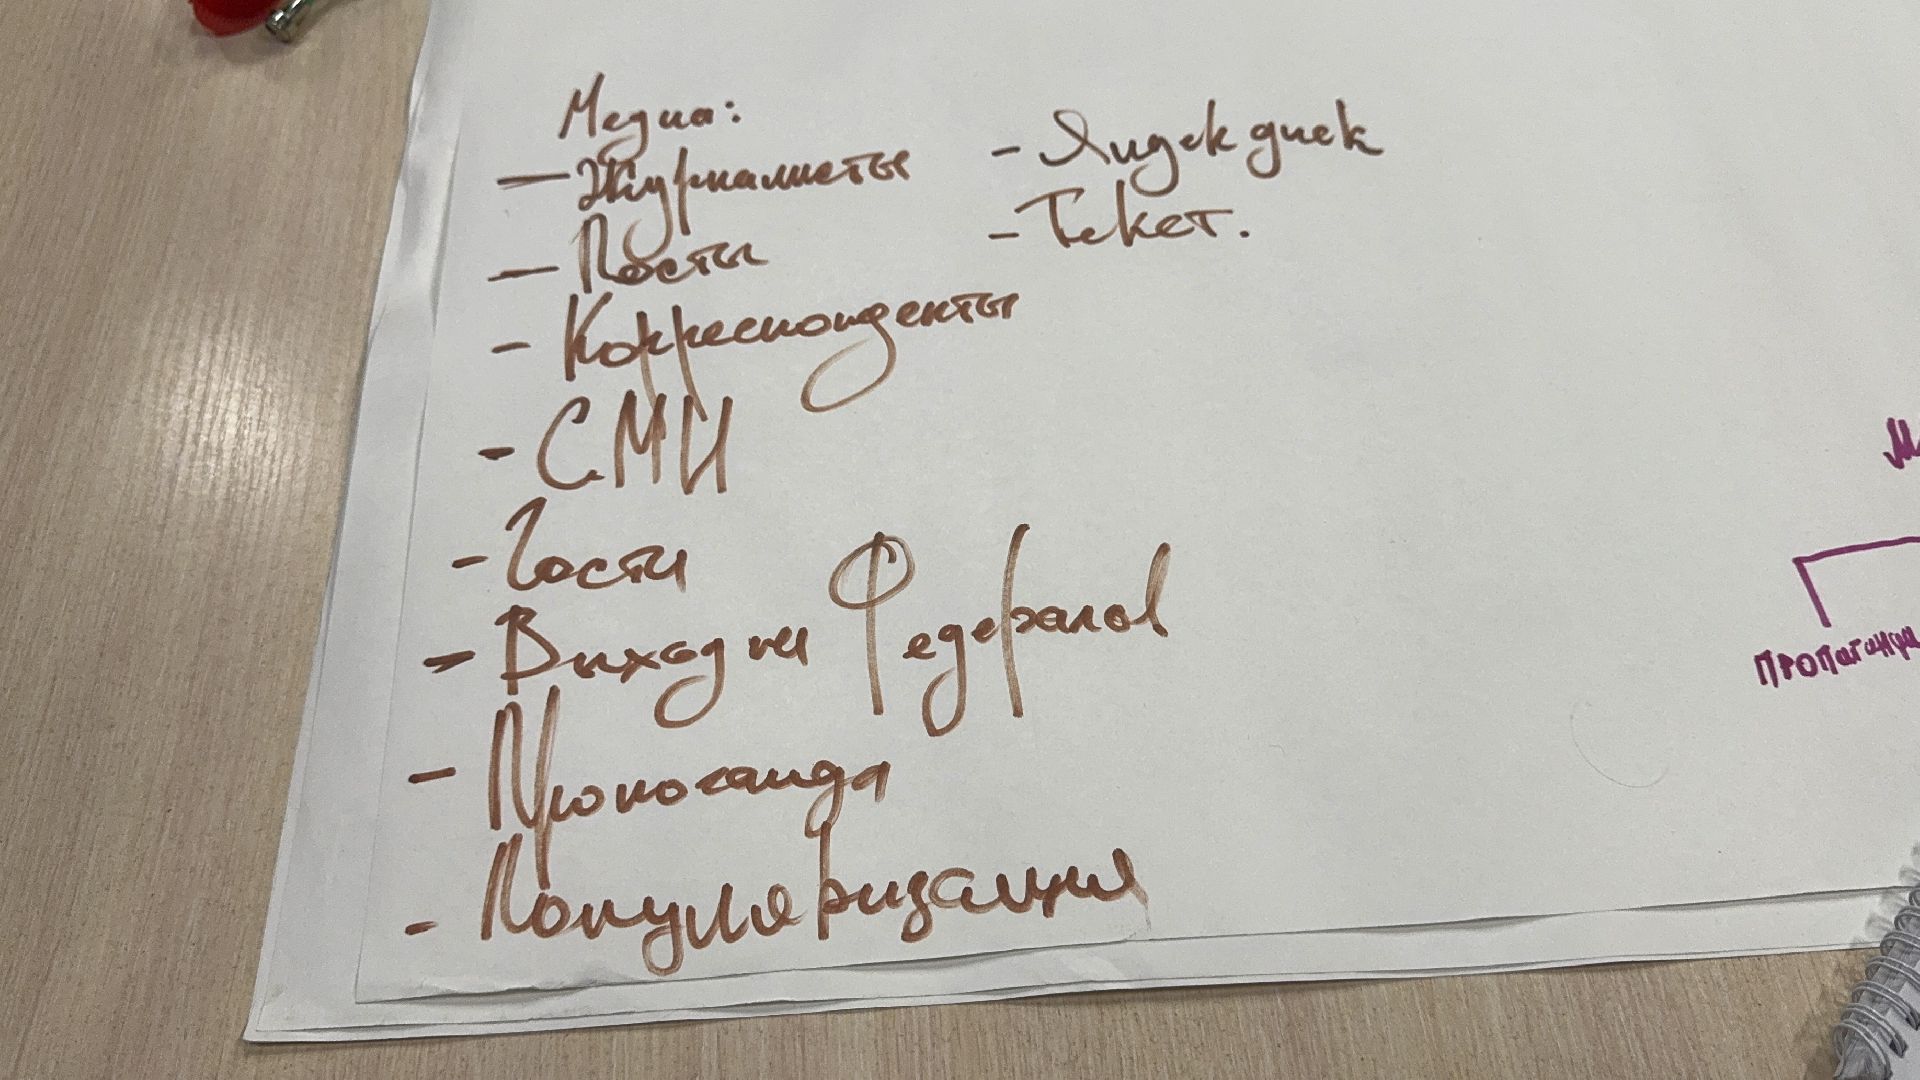 Медиа:
— Журналисты
— Посты
- Корреспонденты
- СМИ
- Гости
- Выход на Федералов
- Пропоганда
- Популяризация
- Яндек диск
- Текст.
М
ПРОПАГАНДА